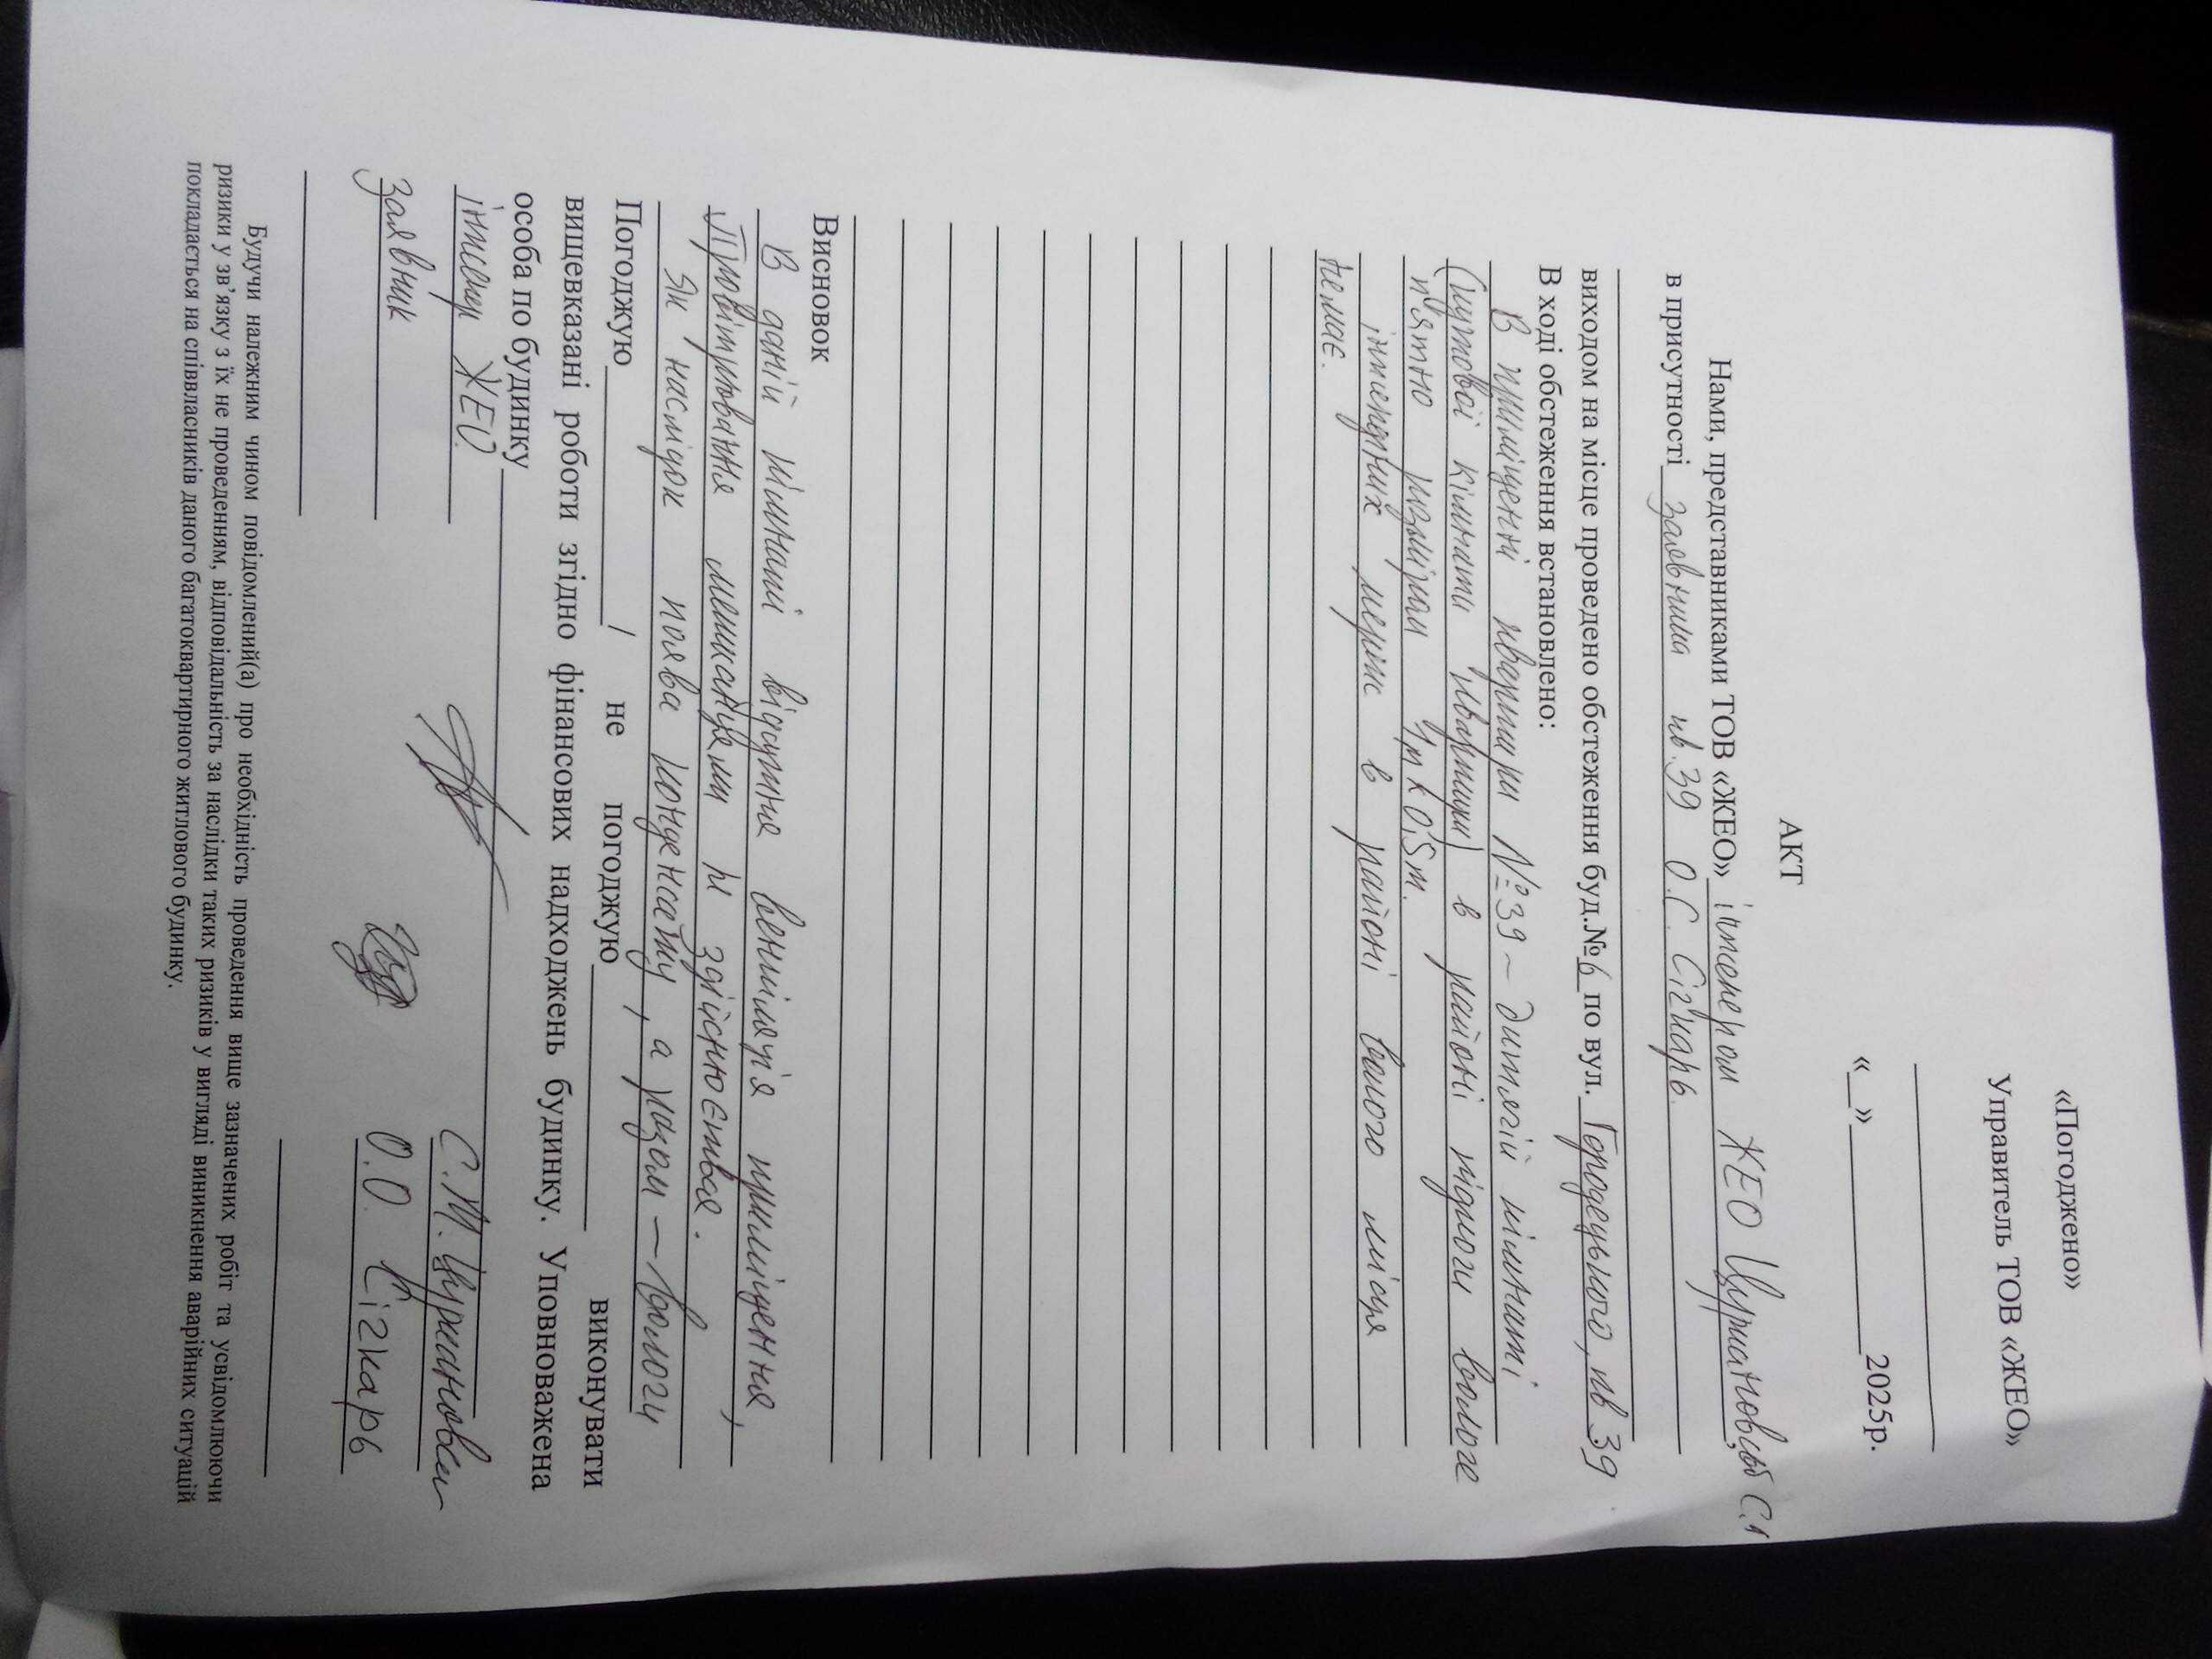 «Погоджено»
Управитель ТОВ «ЖЕО»
«__»__________2025р.
АКТ
Нами, представниками ТОВ «ЖЕО» інженером ЖЕО
в присутності заявника кв.39 О.С. Сігнарь.
виходом на місце проведено обстеження буд.№6 по вул. Городецького, кв 39
В ході обстеження встановлено:
В приміщенні квартири №39 – дитячій кімнаті
(кутової кімнати квартири) в районі підлоги вологе
п'ятно розміром 1м х 0,5м.
інженерних мереж в районі вогкого місця
немає.
Висновок
В даній кімнаті відсутня вентиляція приміщення,
Провітрювання мешканцями не здійснюється.
Як наслідок поява конденсату, а разом – вологи
Погоджую__________/ не погоджую__________ виконувати
вищевказані роботи згідно фінансових надходжень будинку. Уповноважена
особа по будинку
інженер ЖЕО. С.М.
заявник О.О. Сігкарь
Будучи належним чином повідомлений(а) про необхідність проведення вище зазначених робіт та усвідомлюючи
ризики у зв’язку з їх не проведенням, відповідальність за наслідки таких ризиків у вигляді виникнення аварійних ситуацій
покладається на співвласників даного багатоквартирного житлового будинку.